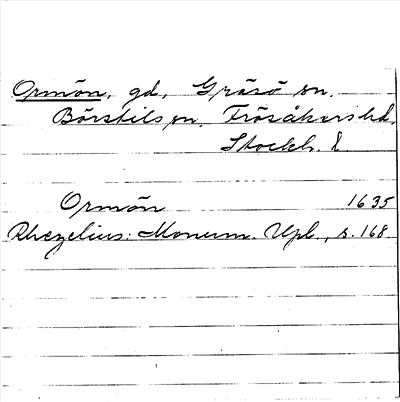 Ormön, gd, Gräsö sn.
Börstils sn. Frösåkers hd.
Stockh. l
Ormön 1635
Rhezelius: Monum. Upl., s. 168